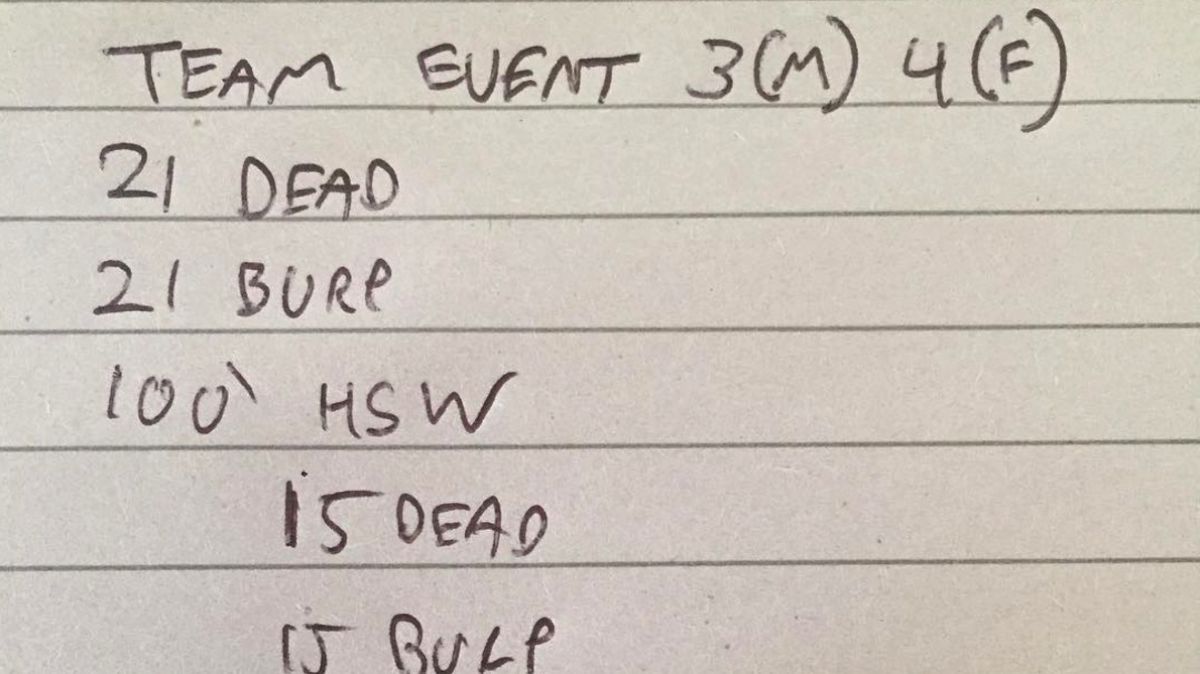 TEAM EVENT 3(M) 4(F)
21 DEAD
21 BURP
100' HSW
15 DEAD
15 BURP